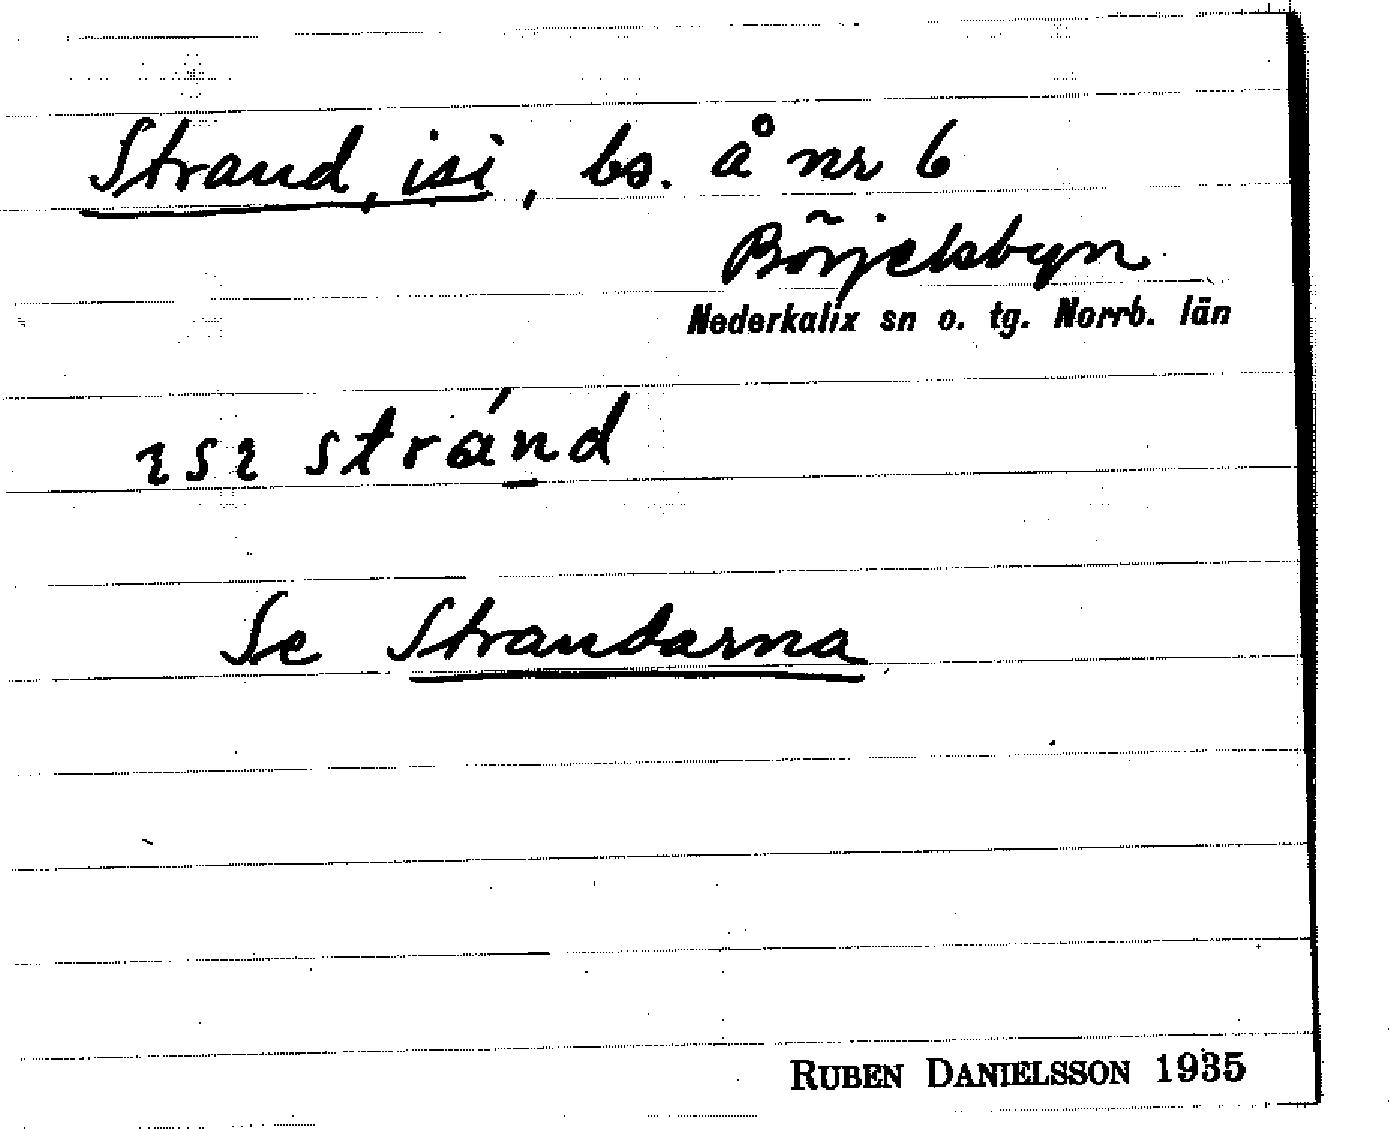 Strand, isi, bs. å nr 6
Börjelsbyn
Nederkalix sn o. tg. Norrb. län
ɩsɩ stránd
Se Strandarna
RUBEN DANIELSSON 1935